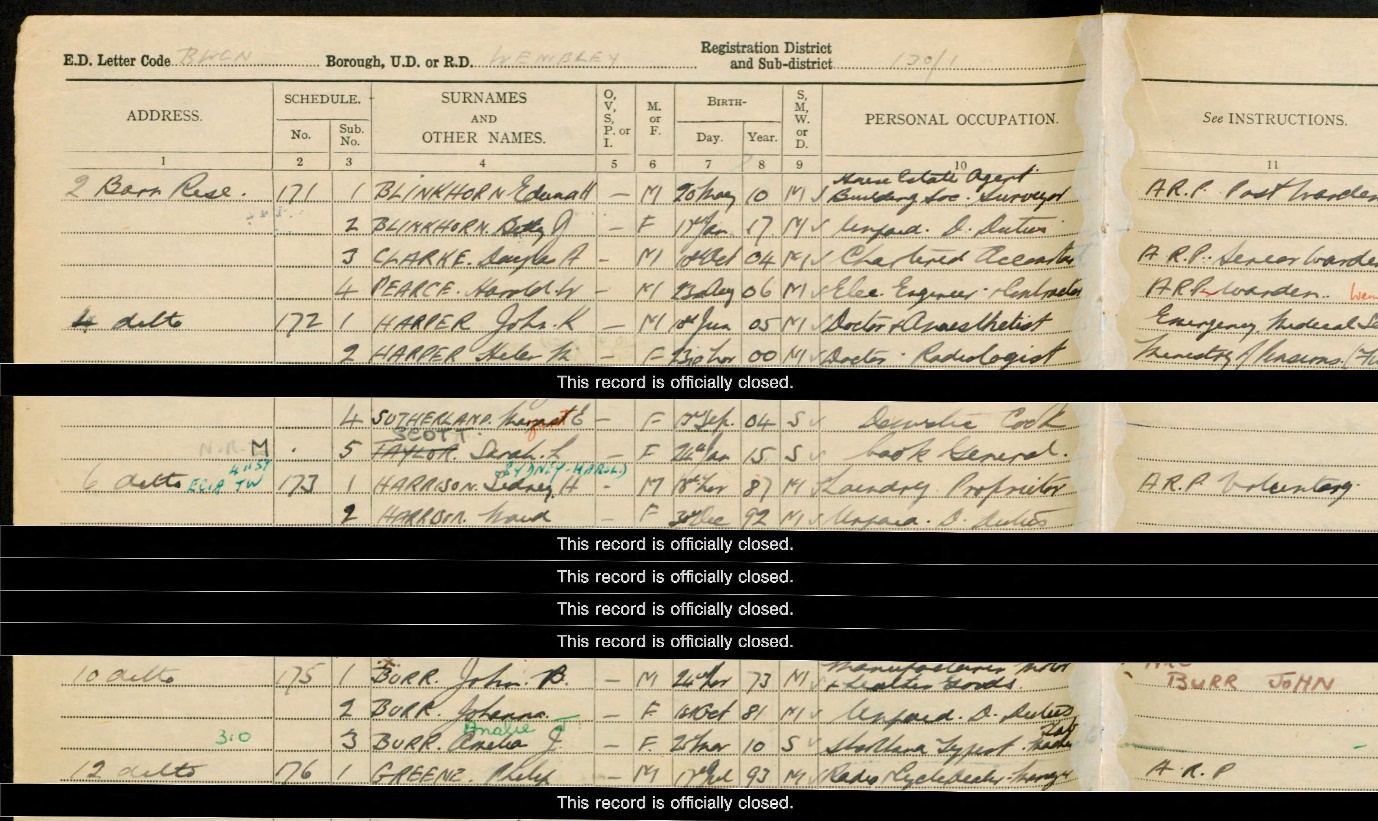 E.D. Letter Code BWGN Borough, U.D. or R.D. WEMBLEY Registration District and Sub-district 130/1
ADDRESS. SCHEDULE. SURNAMES AND OTHER NAMES. O, V, S, P. or I. M. or F. BIRTH- S, M, W. or D. PERSONAL OCCUPATION. See INSTRUCTIONS.
No. Sub. No. Day. Year.
1 2 3 4 5 6 7 8 9 10 11
House Estate Agent
2 Barn Rise. 171 1 BLINKHORN Edward H — M 20 10 M Building Soc. Surveyor A.R.P. Post Warden
2 BLINKHORN. Betty J — F 17 Jan 17 M Unpaid. D. Duties
3 CLARKE. Douglas A — M Oct 04 M Chartered Accountant A.R.P. Senior Warden
4 PEARCE. Harold W — M 23 06 M Elec. Engineer + Contractor A.R.P. Warden.
4 ditto 172 1 HARPER John. K — M Jun 05 M Doctor + Anaesthetist Emergency Medical
2 HARPER Helen M — F Nov 00 M Doctor - Radiologist Ministry of Pensions.
This record is officially closed.
4 SUTHERLAND. Margaret E — F Sep. 04 S Domestic Cook
SCOTT.
N.R. M 5 TAYLOR. Sarah. L F Jan 15 S Cook General.
(SYDNEY-HAROLD)
6 ditto 173 1 HARRISON. Sidney H — M 18 Nov 87 M Laundry Proprietor A.R.P Voluntary
2 HARRISON. Maud — F Dec 92 M Unpaid. D. Duties
This record is officially closed.
This record is officially closed.
This record is officially closed.
This record is officially closed.
Manufacturer Motor
10 ditto 175 1 BURR. John. B. — M 24 Nov 73 M + Leather Goods BURR JOHN
2 BURR Johanna — F Oct 81 M Unpaid. D. Duties
Amalie J
3:0 3 BURR. Amelia J. — F. Mar 10 S Shorthand Typist
12 ditto 176 1 GREENE. Philip — M 17 Jul 93 M Radio + Cycle Dealer - Manager A.R.P
This record is officially closed.